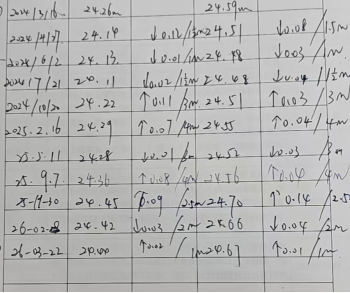 2024/3/16 24.26m 24.59m
2024/4/27 24.14 ↓0.12/1½m 24.51 ↓0.08/1.5m
2024/6/2 24.13 ↓0.01/1m 24.48 ↓0.03/1m
2024/7/21 24.11 ↓0.02/1½m 24.48 ↓0.04/1½m
2024/10/20 24.22 ↑0.11/3m 24.51 ↑0.03/3m
2025.2.16 24.29 ↑0.07/4m 24.55 ↑0.04/4m
25.5.11 24.28 ↓0.01/3m 24.52 ↓0.03/3m
25.9.7 24.36 ↑0.08/4m 24.56 ↑0.04/4m
24.45 ↑0.09/2.5m 24.70 ↑0.14/2.5
26-02-8 24.42 ↓0.03/2m 24.66 ↓0.04/2m
26-03-22 24.44 ↑0.02/1m 24.67 ↑0.01/1m